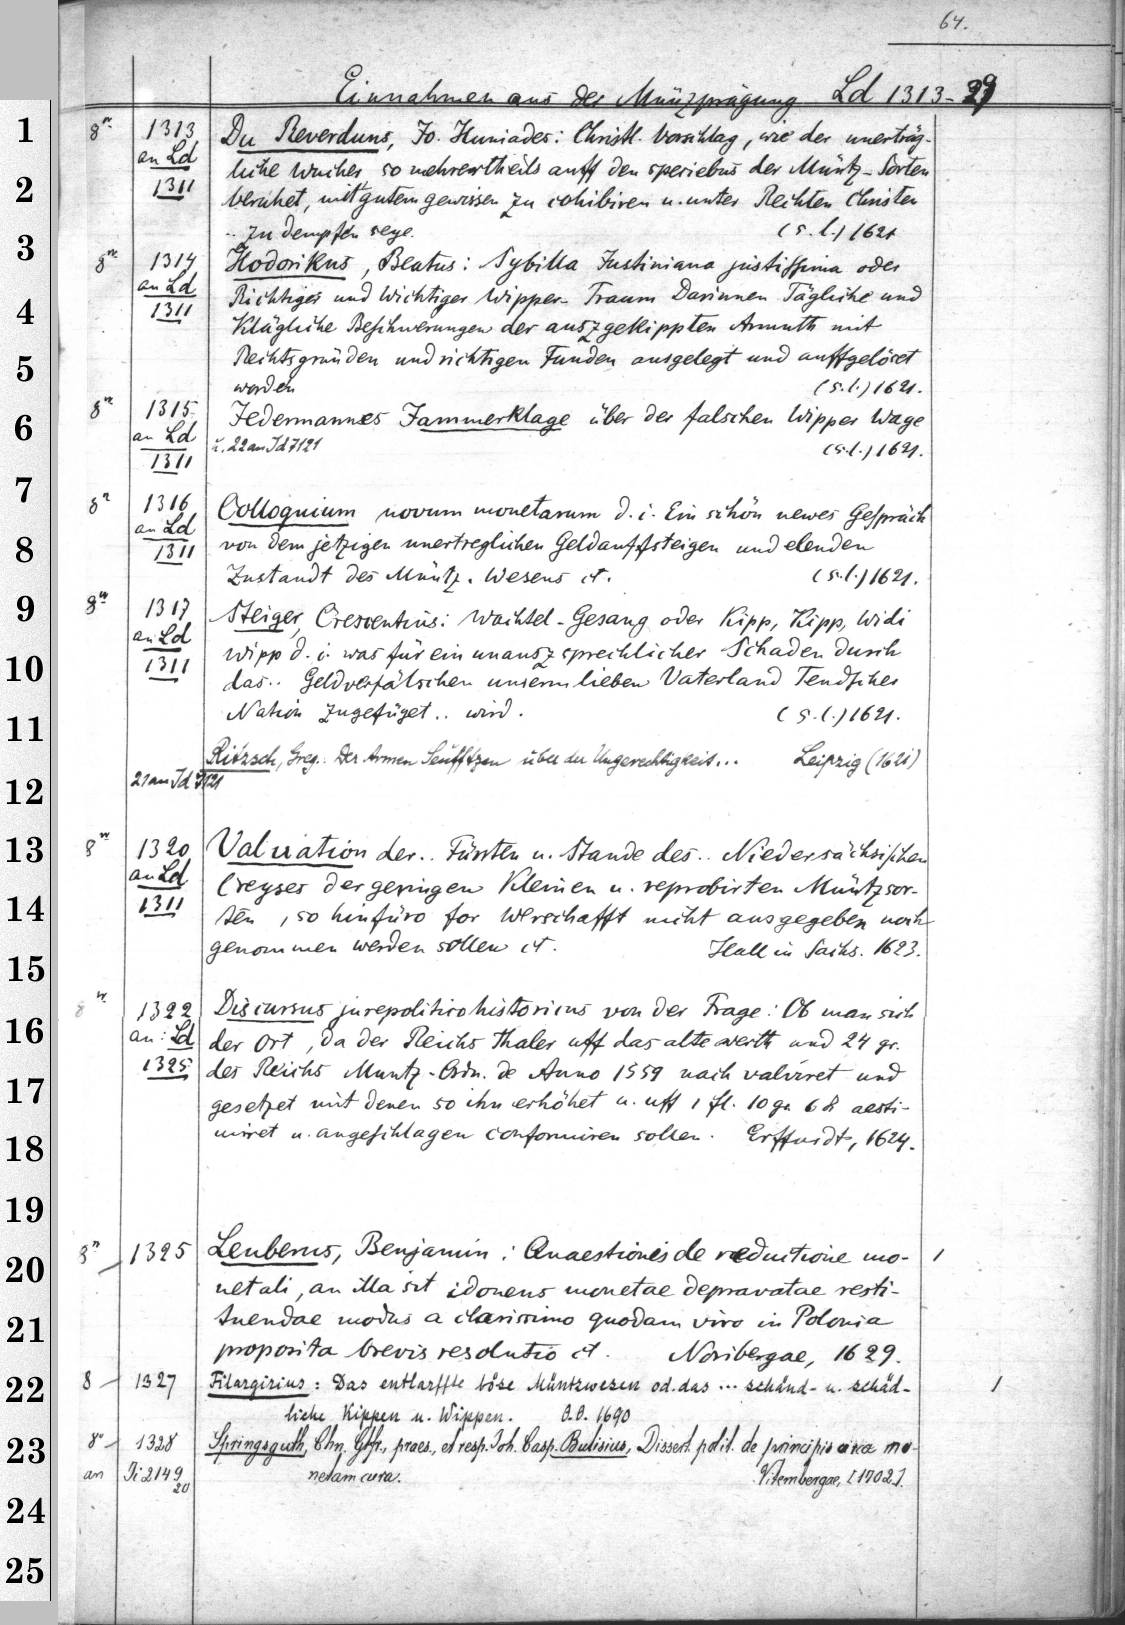 64.
Einnahmen aus der Münzprägung Ld 1313-29
1 8° 1313 Du Reverduns, Jo. Huniades: Christl. Vorschlag, wie der unerträg-
an Ld liche Wucher, so mehrertheils auff den speciebus der Müntz-Sorten
2 1311 beruhet, mit gutem gewissen zu cohibiren u. unter Rechten Christen
3 .. zu dempfen seye. (s.l.) 1621
8° 1314 Hodorikus, Beatus: Sybilla Justiniana justissima oder
4 an Ld Richtiger und Wichtiger Wipper-Traum Darinnen Tägliche und
1311 Klägliche Beschwerungen der auszgekippten Armuth mit
5 Rechtsgründen und richtigen Funden ausgelegt und auffgelöset
worden (s.l.) 1621.
6 8° 1315 Jedermannes Jammerklage über der falschen Wipper Wage
an Ld u. 22 an Id 7121 (s.l.) 1621.
1311
7
8° 1316 Colloquium novum monetarum d. i. Ein schön newes Gespräch
8 an Ld von dem jetzigen unertreglichen Geldauffsteigen und elenden
1311 Zustandt des Müntz. Wesens et. (s.l.) 1621.
9 8° 1317 Steiger, Crescentius: Wachtel-Gesang oder Kipp, Kipp, Widi
an Ld wipp d. i. was für ein unauszsprechlicher Schaden durch
10 1311 das.. Geldverfälschen unserm lieben Vaterland Teudscher
11 Nation zugefüget .. wird. (s.l.) 1621.
Ritzsch, Greg.: Der Armen Seufftzen über die Ungerechtigkeit... Leipzig (1621)
12 21 an Id 7121
13 8° 1320 Valuation der.. Fürsten u. Stande des.. Niedersächsischen
an Ld Creyses der geringen Kleinen u. reprobirten Müntzsor-
14 1311 ten, so hinfüro for Werschafft nicht ausgegeben noch
genommen werden sollen et. Hall in Sachs. 1623.
15
8° 1322 Discursus jurepoliticohistoricus von der Frage: Ob man sich
16 an: Ld der Ort, da der Reichs Thaler uff das alte werth und 24 gr.
17 1325 des Reichs Muntz-Ordn. de Anno 1559 nach valviret und
gesetzet mit denen so ihn erhöhet u. uff 1 fl. 10 gr. 6 ₰ aesti-
18 miret u. angeschlagen conformiren sollen. Erffurdt, 1624.
19
8° 1325 Leuberus, Benjamin: Quaestionis de reductione mo- 1
20 netali, an illa sit idoneus monetae depravatae resti-
21 tuendae modus a clarissimo quodam viro in Polonia
proposita brevis resolutio et. Noribergae, 1629.
22 8 1327 Filargirius: Das entlarffte böse Müntzwesen od. das ... schänd- u. schäd- 1
liche Kippen u. Wippen. O.O. 1690
23 8° 1328 Springsguth, Chn. Gfr., praes., et resp. Joh. Casp. Bulisius, Dissert. polit. de principis circa mo-
an Ji 2149 netam cura. Vitembergae, [1702].
20
24
25